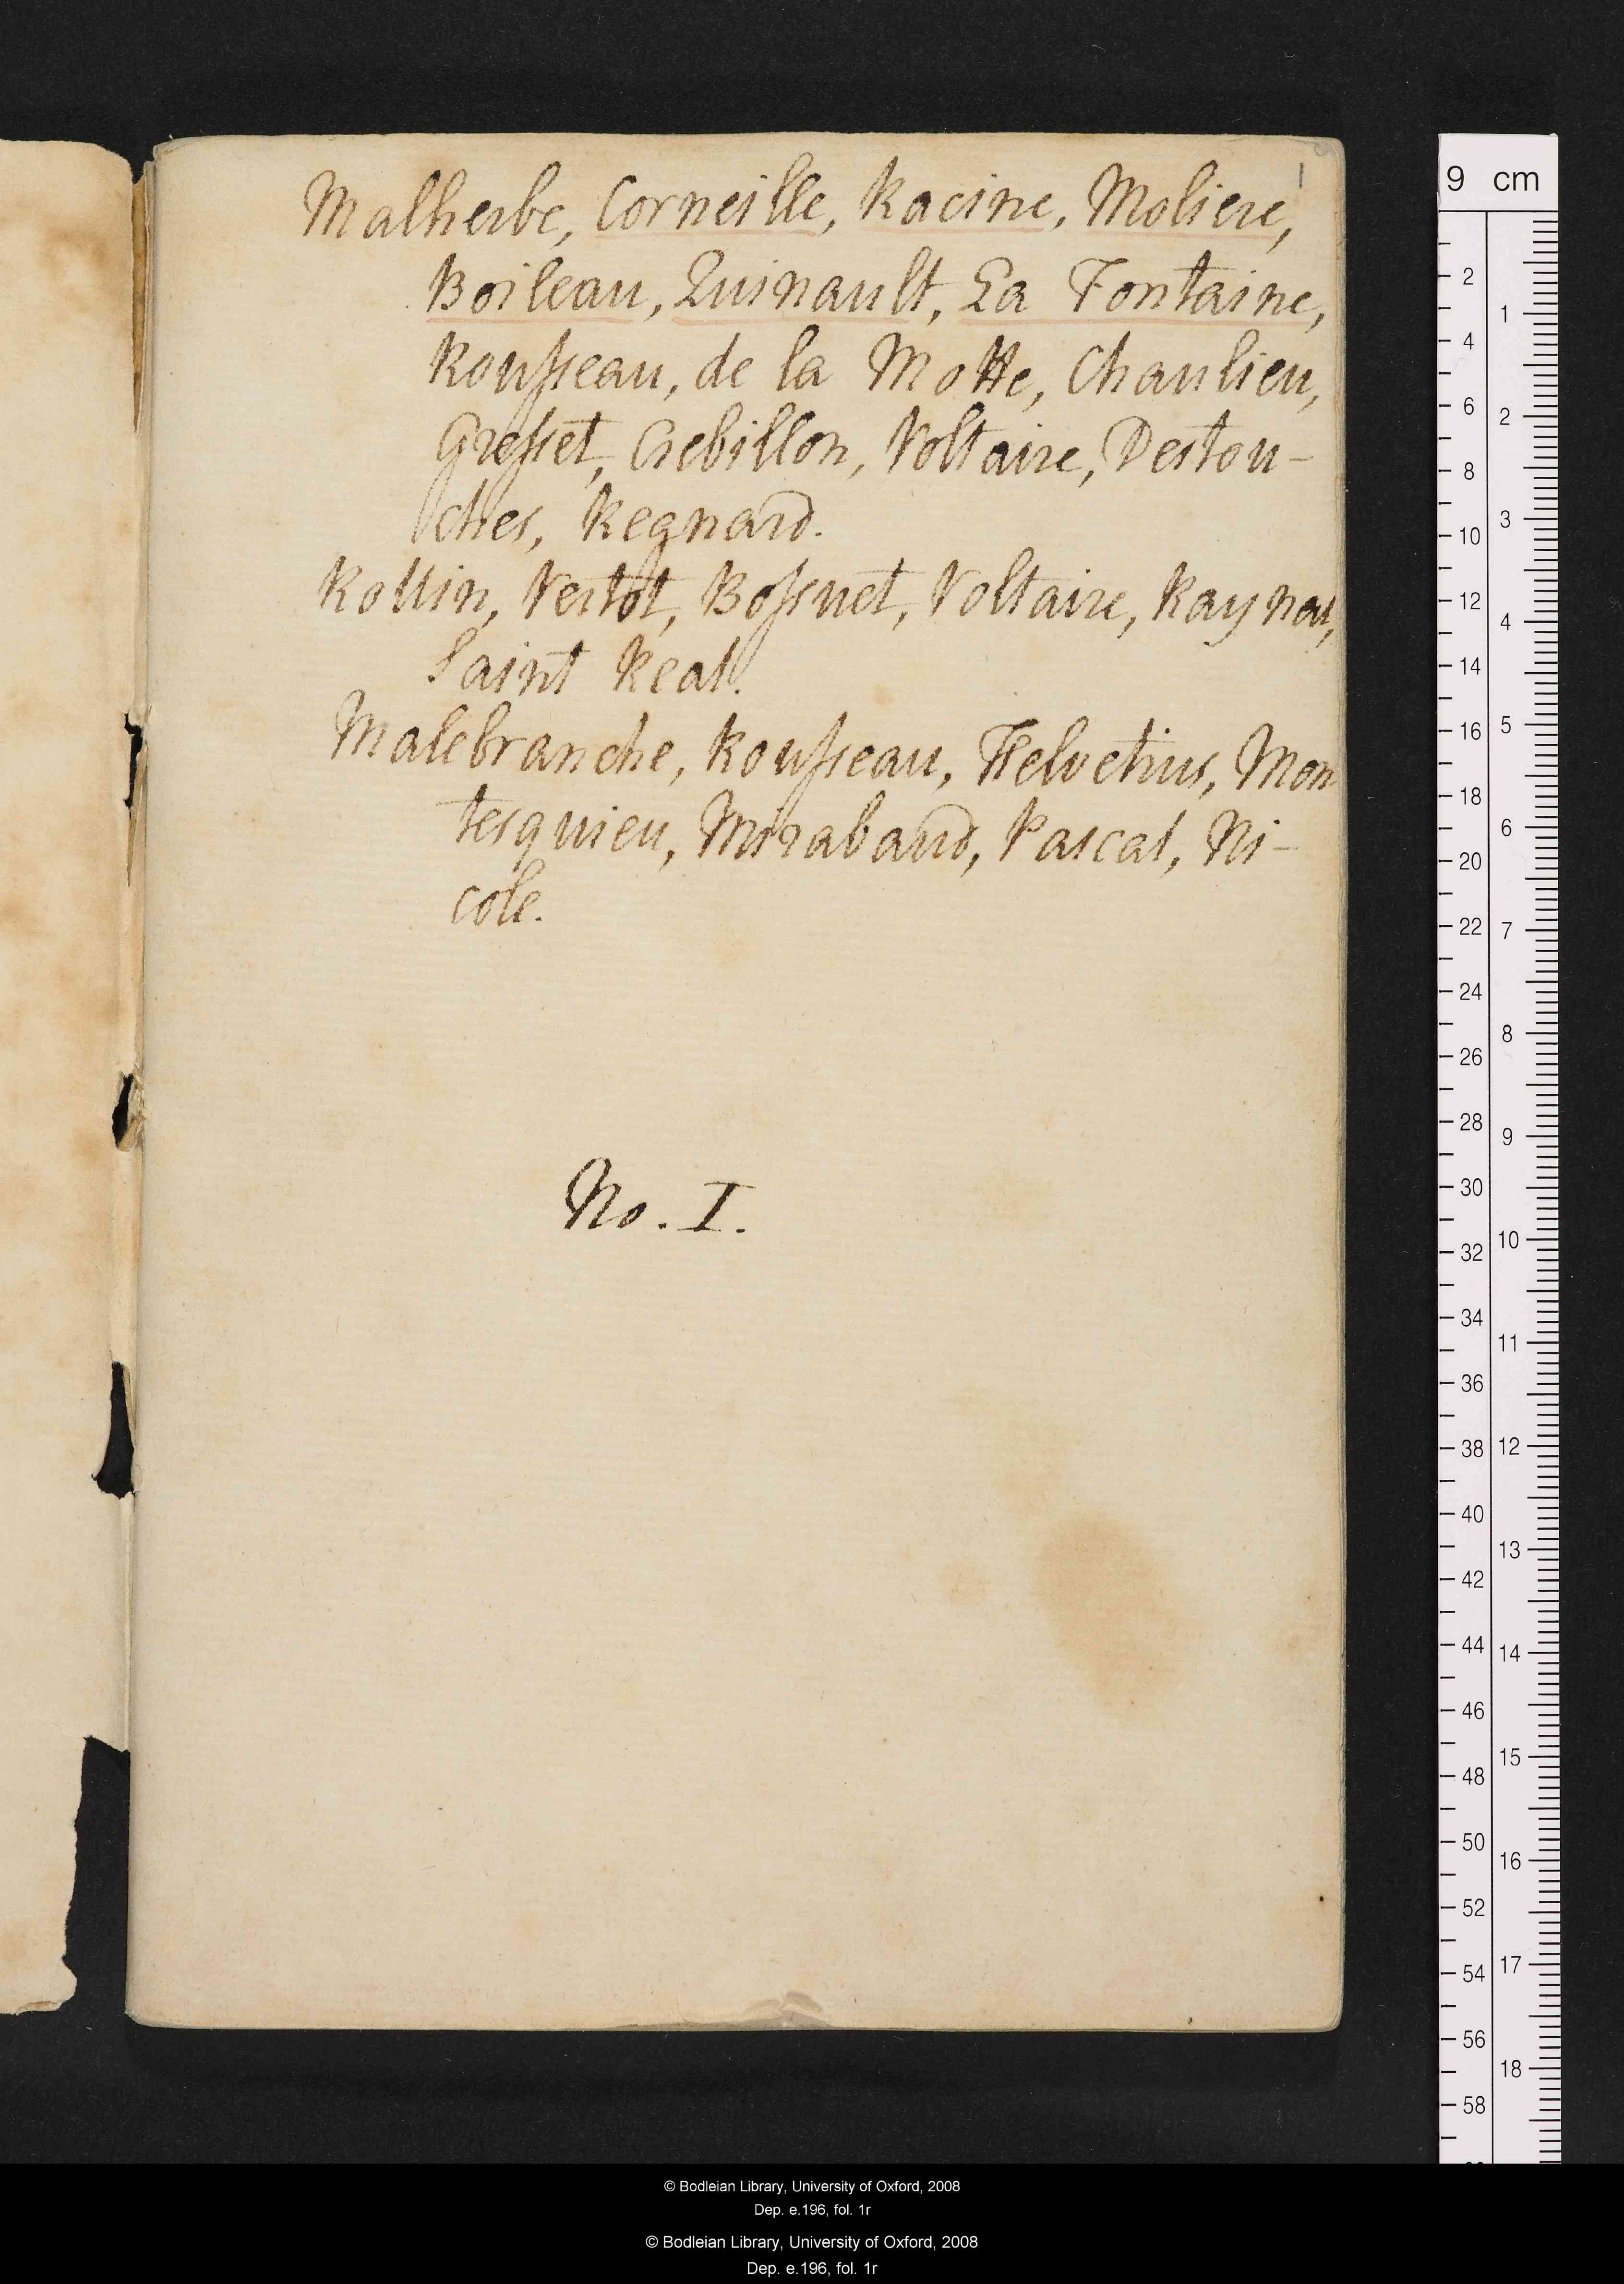 1
Malherbe, Corneille, Racine, Moliere,
Boileau, Quinault, La Fontaine,
Rousseau, de la Motte, Chaulieu,
Gresset, Crebillon, Voltaire, Destou-
ches, Regnard.
Rollin, Vertot, Bossuet, Voltaire, Raynal,
Saint Real.
Malebranche, Rousseau, Helvetius, Mon
tesquieu, Mirabaud, Pascal, Ni-
cole.
No. I.
9 cm
2
4
6
8
10
12
14
16
18
20
22
24
26
28
30
32
34
36
38
40
42
44
46
48
50
52
54
56
58
1
2
3
4
5
6
7
8
9
10
11
12
13
14
15
16
17
18
© Bodleian Library, University of Oxford, 2008
Dep. e.196, fol. 1r
© Bodleian Library, University of Oxford, 2008
Dep. e.196, fol. 1r